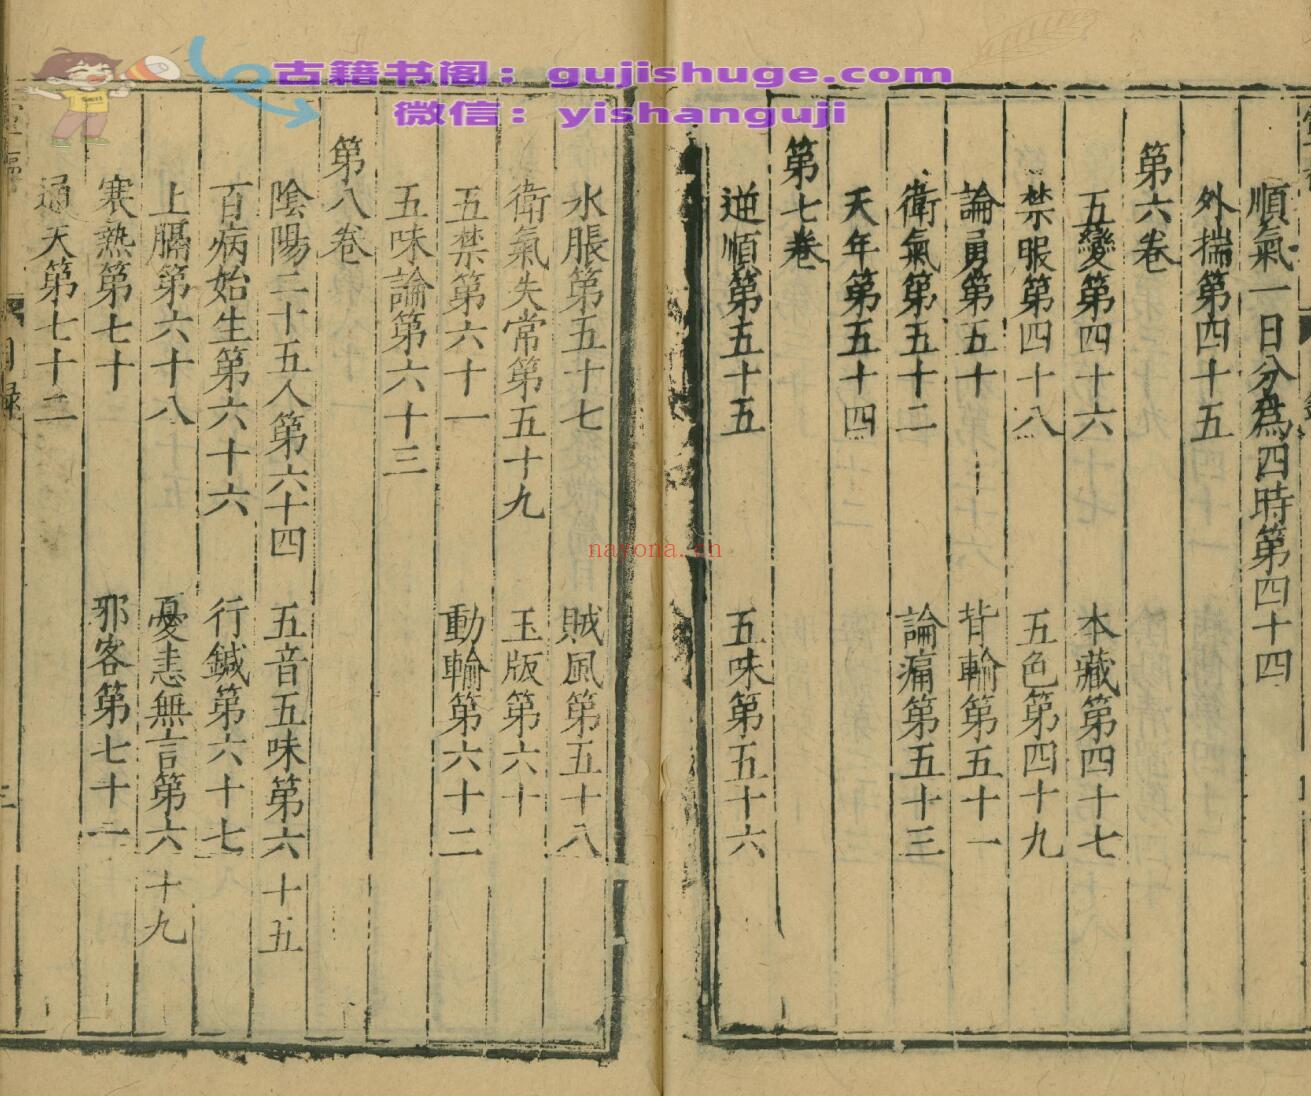 古籍书阁：gujishuge.com
微信：yishanguji
順氣一日分爲四時第四十四
外揣第四十五
第六卷
五變第四十六 本藏第四十七
禁服第四十八 五色第四十九
論勇第五十 背輸第五十一
衛氣第五十二 論痛第五十三
天年第五十四
第七卷
逆順第五十五 五味第五十六
水脹第五十七 賊風第五十八
衛氣失常第五十九 玉版第六十
五禁第六十一 動輸第六十二
五味論第六十三
第八卷
陰陽二十五人第六十四 五音五味第六十五
百病始生第六十六 行鍼第六十七
上膈第六十八 憂恚無言第六十九
寒熱第七十 邪客第七十一
通天第七十二
nayona.cn